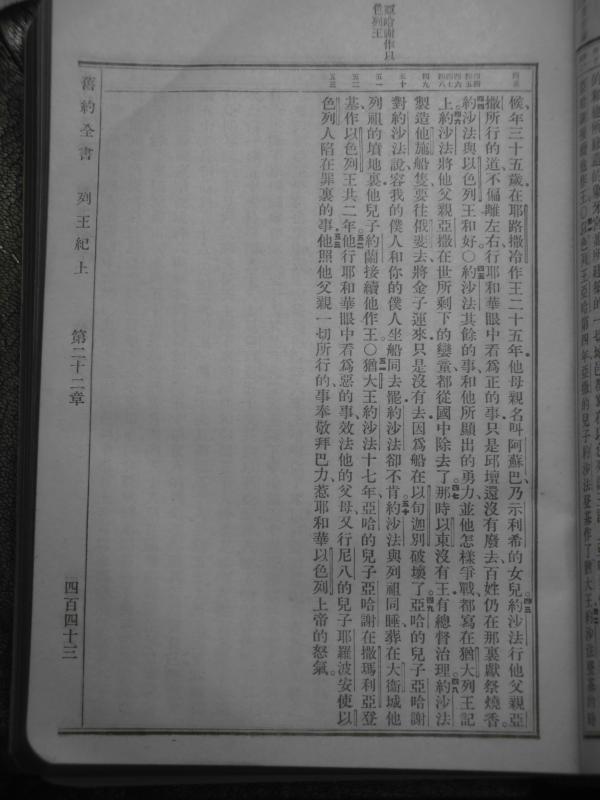 亞哈謝作以
色列王
候年三十五歲在耶路撒冷作王二十五年他母親名叫阿蘇巴乃示利希的女兒約沙法行他父親亞
撒所行的道不偏離左右行耶和華眼中看爲正的事只是邱壇還沒有廢去百姓仍在那裏獻祭燒香
約沙法與以色列王和好〇約沙法其餘的事和他所顯出的勇力並他怎樣爭戰都寫在猶大列王記
上約沙法將他父親亞撒在世所剩下的孌童都從國中除去了那時以東沒有王有總督治理約沙法
製造他施船隻要往俄斐去將金子運來只是沒有去因爲船在以旬迦別破壞了亞哈的兒子亞哈謝
對約沙法說容我的僕人和你的僕人坐船同去罷約沙法卻不肯約沙法與列祖同睡葬在大衞城他
列祖的墳地裏他兒子約蘭接續他作王〇猶大王約沙法十七年亞哈的兒子亞哈謝在撒瑪利亞登
基作以色列王共二年他行耶和華眼中看爲惡的事效法他的父母又行尼八的兒子耶羅波安使以
色列人陷在罪裏的事他照他父親一切所行的事奉敬拜巴力惹耶和華以色列上帝的怒氣
舊約全書 列王紀上 第二十二章 四百四十三